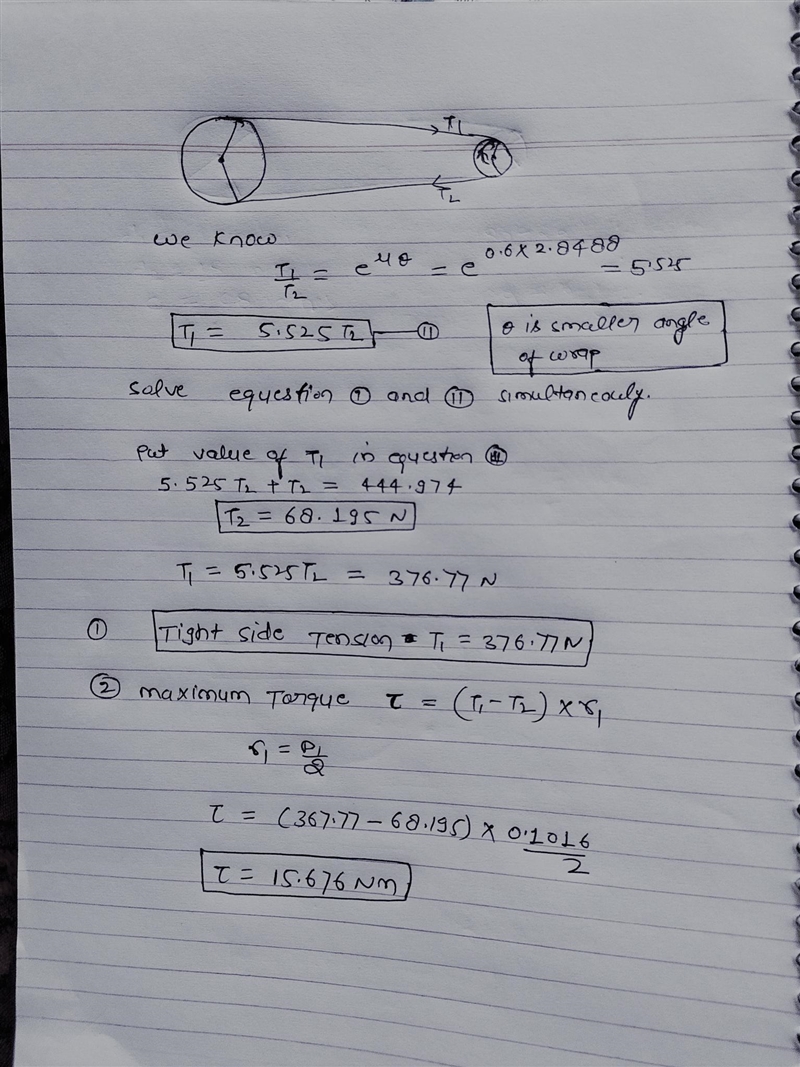 T1
T2
we know
T1/T2 = e^μθ = e^0.6×2.8488 = 5.525
T1 = 5.525 T2 — II
θ is smaller angle
of wrap
solve equestion I and II simultaneouly.
Put value of T1 in equestion
5.525 T2 + T2 = 444.974
T2 = 68.195 N
T1 = 5.525T2 = 376.77 N
① Tight side Tension T1 = 376.77 N
② maximum Torque τ = (T1 - T2) × r1
r1 = D1/2
τ = (367.77 - 68.195) × 0.1016/2
τ = 15.676 Nm